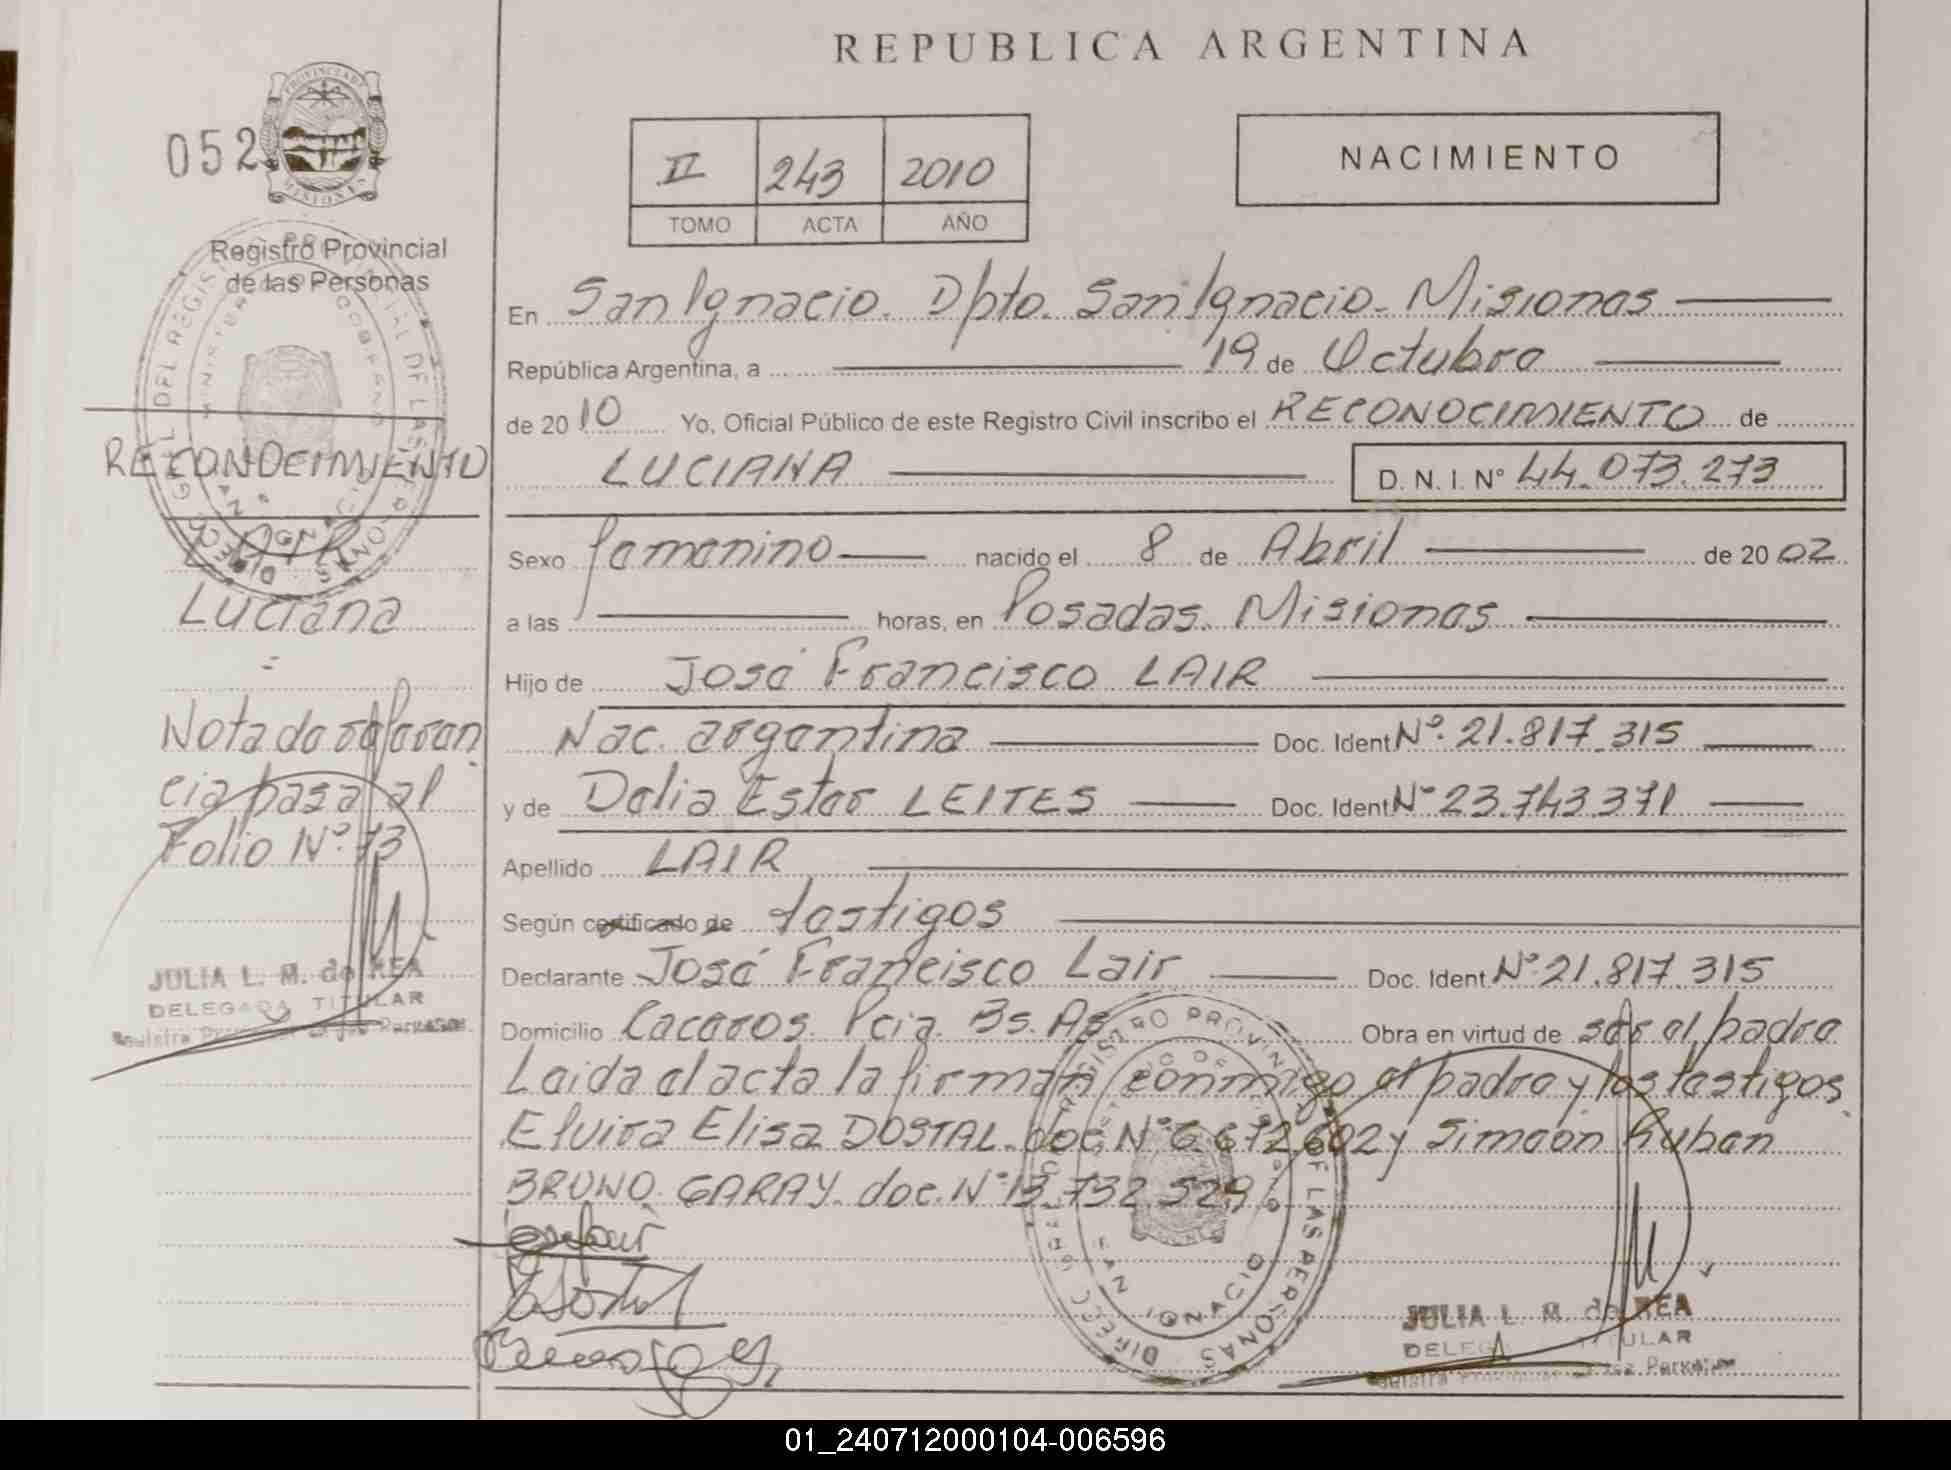 REPUBLICA ARGENTINA
052
PROVINCIA DE
MISIONES
Registro Provincial
de las Personas
II 243 2010
TOMO ACTA AÑO
NACIMIENTO
En San Ignacio. Dpto. San Ignacio. Misiones
República Argentina, a 19 de Octubre
de 2010 Yo, Oficial Público de este Registro Civil inscribo el RECONOCIMIENTO de
LUCIANA D. N. I. Nº 44.073.273
Sexo femenino nacido el 8 de Abril de 2002
a las horas, en Posadas. Misiones
Hijo de José Francisco LAIR
Nac. argentina Doc. Ident Nº. 21.817.315
y de Delia Ester LEITES Doc. Ident Nº 23.743.371
Apellido LAIR
Según certificado de testigos
Declarante José Francisco Lair Doc. Ident Nº 21.817.315
Domicilio Caceros. Pcia. Bs. As. Obra en virtud de ser el padre
Leida el acta la firman conmigo el padre y los testigos
Elvira Elisa DOSTAL. doc. Nº 6.672.602 y Simeón Ruben
BRUNO GARAY. doc. Nº 13.732.529
RECONOCIMIENTO
LAIR
Luciana
Nota de referen
cia pasa al
Folio Nº. 73
JULIA L. M. de REA
DELEGADA TITULAR
Registro Provincial de las Personas
JULIA L. M. de REA
DELEGADA TITULAR
Registro Provincial de las Personas
01_240712000104-006596